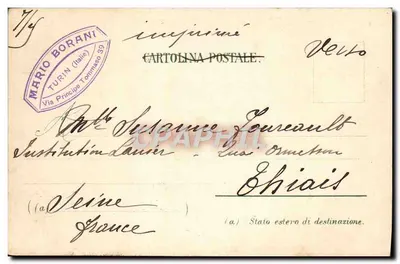 7/5
imprimé
Verso
MARIO BORANI
TURIN (Italie)
Via Principe Tommaso 39
CARTOLINA POSTALE.
Mlle Susanne Foureault
Institution Lanier
Thiais
(a Seine
France
(a.) Stato estero di destinazione.